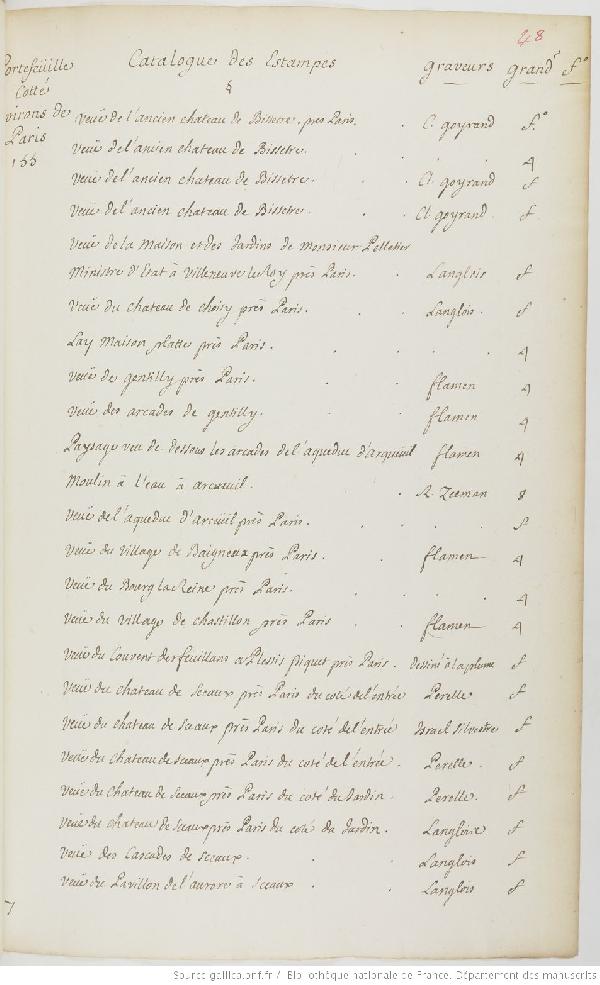 48
Portefeüille
Cotté
virons de
Paris
155
Catalogue des Estampes
graveurs
grandr
fo
§
veüe de l'ancien chateau de Bissetre, pres Paris. C. goyrand fo
veüe de l'ancien chateau de Bissetre. 4
veüe de l'ancien chateau de Bissetre. Cl. goyrand f
veüe de l'ancien chateau de Bissetre. Cl goyrand. f
veüe de la Maison et des Jardins de Monsieur Pelletier
Ministre d'Etat à Villeneuve le Roy près Paris. Langlois f
veüe du chateau de choisy près Paris. Langlois. f
Lay Maison platte près Paris. 4
veüe de gentilly près Paris. flamen 4
veüe des arcades de gentilly. flamen 4
Paysage veu de dessous les arcades de l'aqueduc d'Arqueüil flamen 4
Moulin à l'eau à arcueuil. R. Zeeman 8
veüe de l'aqueduc d'Arcueil près Paris. f
veüe du village de Baigneux près Paris. flamen 4
veüe du Bourg la Reine près Paris. 4
veüe du village de chastillon près Paris flamen 4
veüe du Couvent des feuillans a Plessis piquet près Paris. dessiné à la plume f
veüe du chateau de Sceaux près Paris du coté de l'entrée Perelle f
veüe du chateau de Sceaux près Paris du coté de l'entrée Israel Silvestre f
veüe du chateau de Sceaux près Paris du coté de l'entrée. Perelle. f
veüe du chateau de Sceaux près Paris du coté du Jardin. Perelle. f
veüe du chateau de Sceaux près Paris du coté du Jardin. Langloix f
veüe des Cascades de Sceaux. Langlois f
veüe du Pavillon de l'aurore à Sceaux. Langlois f
Source gallica.bnf.fr / Bibliothèque nationale de France. Département des manuscrits